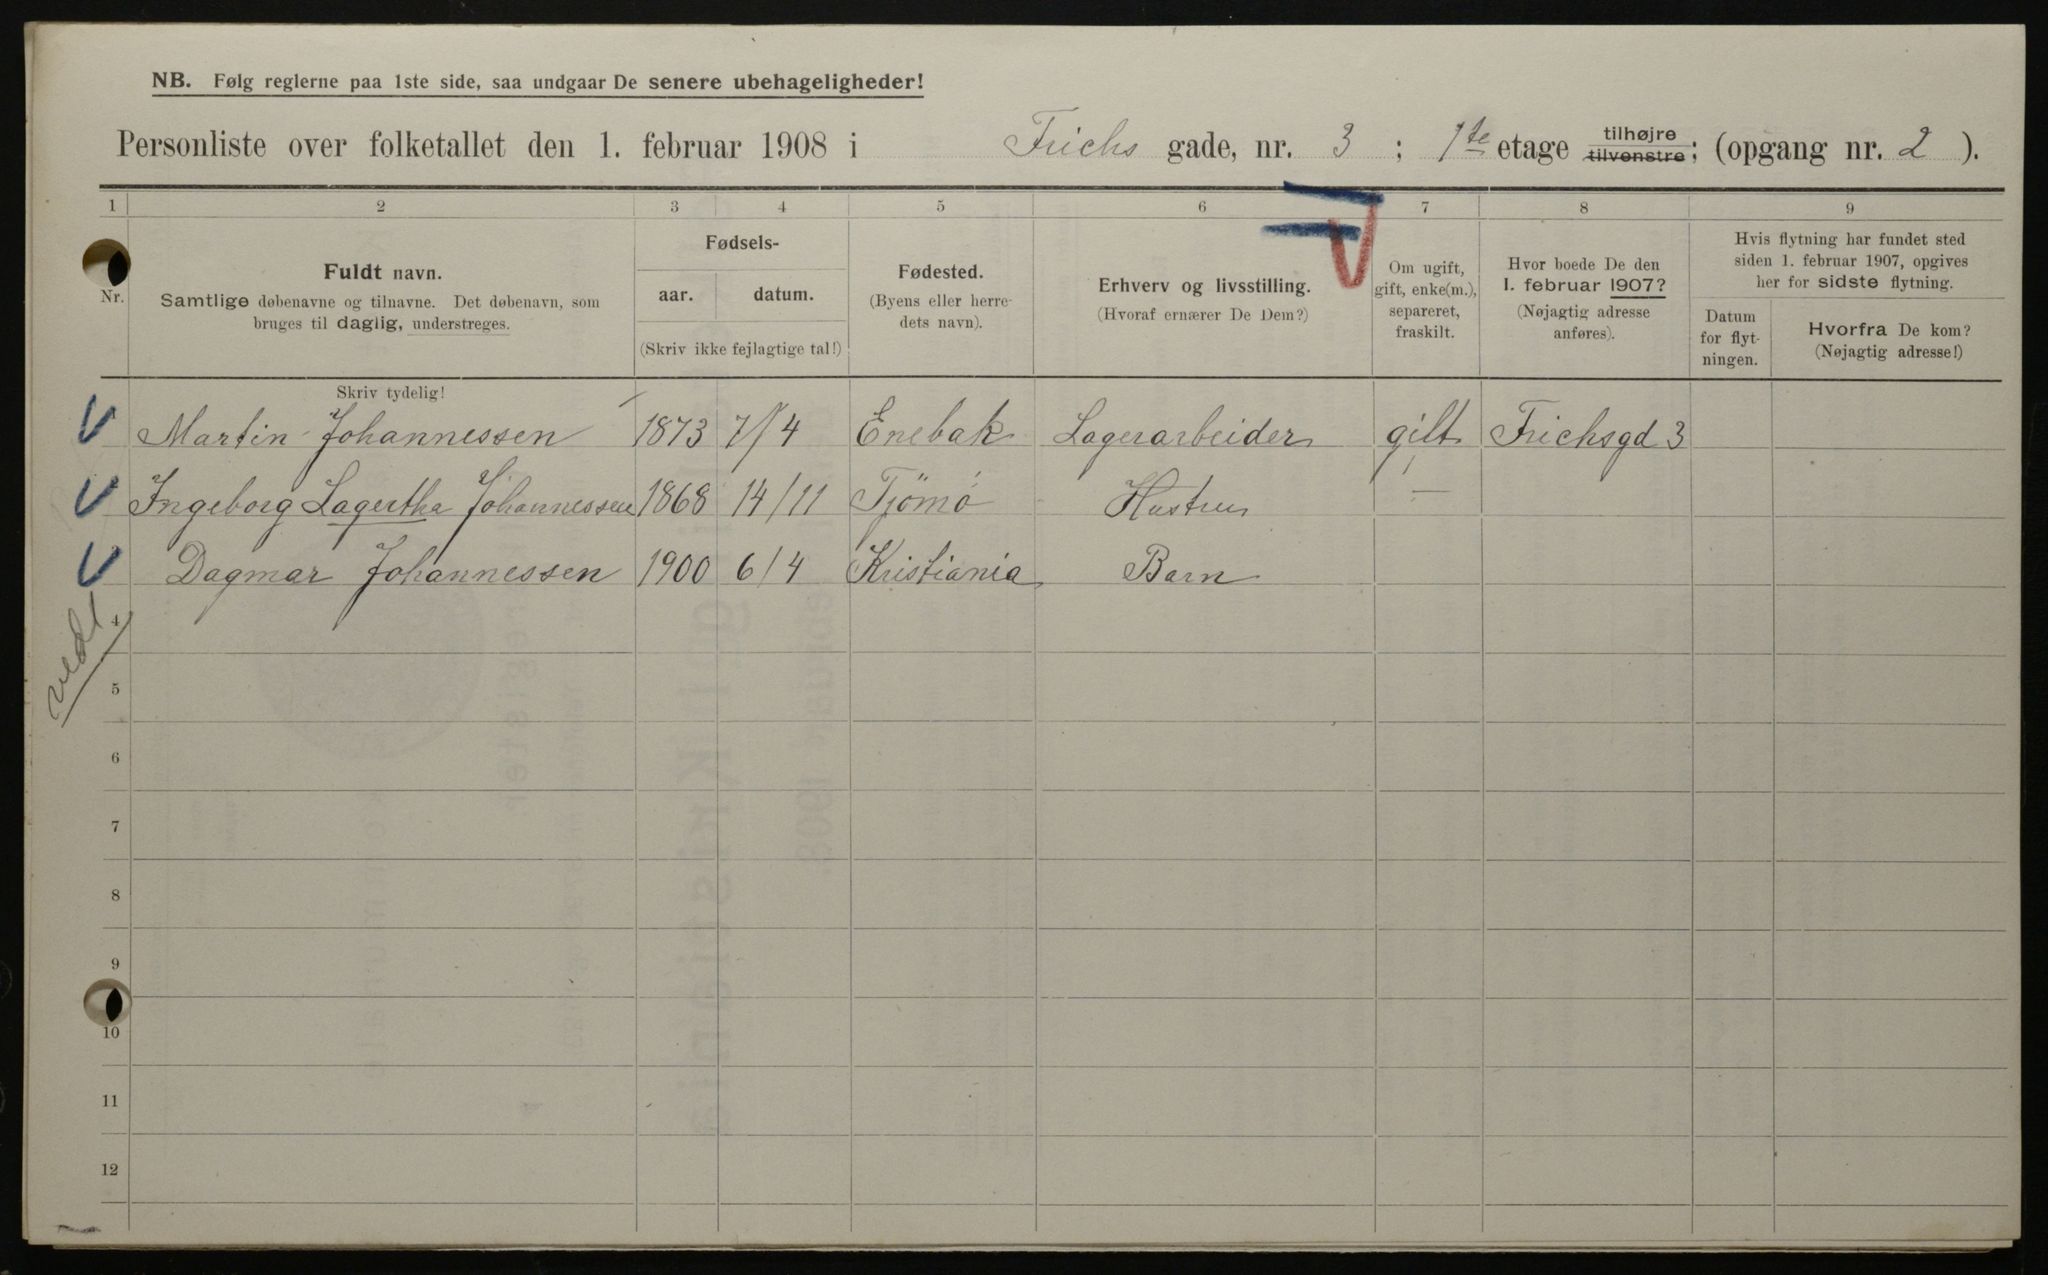 NB. Følg reglerne paa 1ste side, saa undgaar De senere ubehageligheder!
Personliste over folketallet den 1. februar 1908 i Frichs gade, nr. 3 ; 1ste etage tilhøjre tilvenstre; (opgang nr. 2 ).
1 2 3 4 5 6 7 8 9
Nr.
Fuldt navn.
Samtlige døbenavne og tilnavne. Det døbenavn, som
bruges til daglig, understreges.
Fødsels-
aar. datum.
(Skriv ikke fejlagtige tal!)
Fødested.
(Byens eller herre-
dets navn).
Erhverv og livsstilling.
(Hvoraf ernærer De Dem?)
Om ugift,
gift, enke(m.),
separeret,
fraskilt.
Hvor boede De den
1. februar 1907?
(Nøjagtig adresse
anføres).
Hvis flytning har fundet sted
siden 1. februar 1907, opgives
her for sidste flytning.
Datum
for flyt-
ningen.
Hvorfra De kom?
(Nøjagtig adresse!)
Skriv tydelig!
Martin Johannessen 1873 7/4 Enebak Lagerarbeider gift Frichsgd 3
Ingeborg Lagertha Johannessen 1868 14/11 Tjömö Hustru —
Dagmar Johannessen 1900 6/4 Kristiania Barn
4
5
6
7
8
9
10
11
12